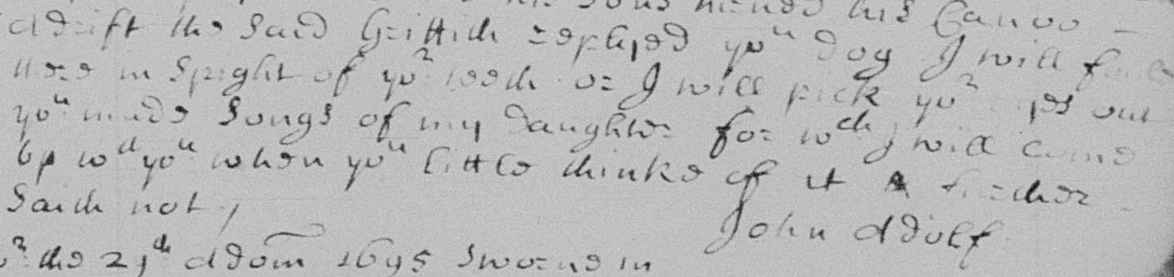 his Canoo
adrift the said Grittith replyed yo^u dog I will
here in spight of yo^r teeth or I will pick yo^r eyes out
yo^u made songs of my daughter for w^ch I will come
up w^th yo^u when yo^u little thinke of it & further
Saith not /
John Adolf
the 29^th Adom 1695 Sworne in